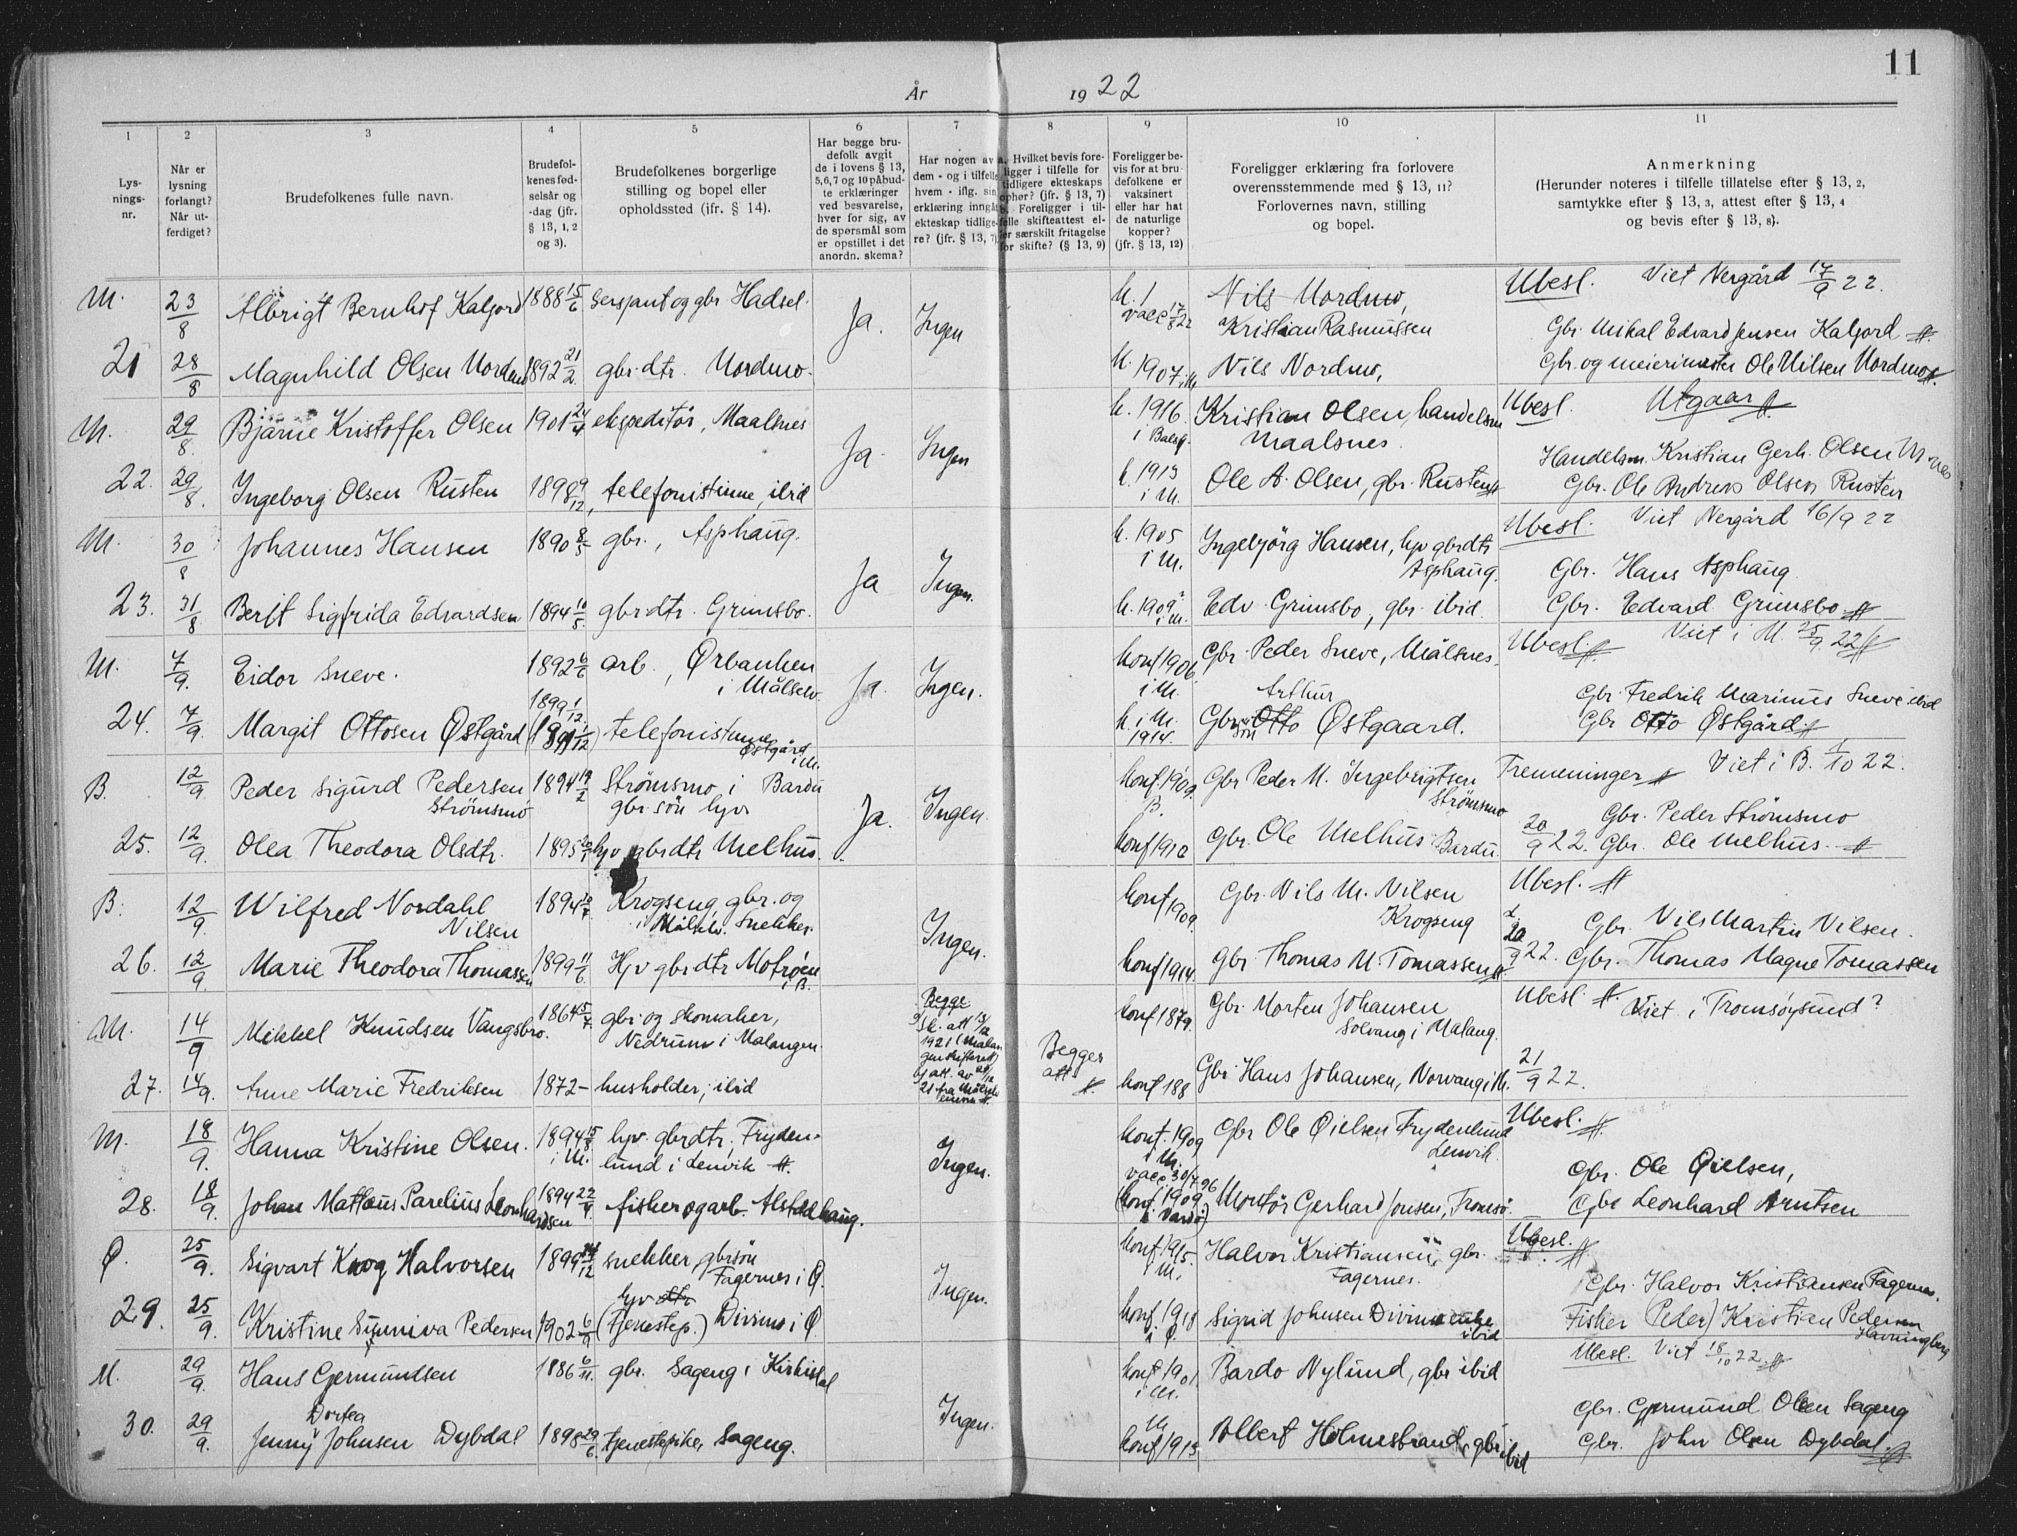 11
År 1922
1 2 3 4 5 6 7 8 9 10 11
Lys-
nings-
nr.
Når er
lysning
forlangt?
Når ut-
ferdiget?
Brudefolkenes fulle navn.
Brudefol-
kenes fød-
selsår og
-dag (jfr.
§ 13, 1, 2
og 3).
Brudefolkenes borgerlige
stilling og bopel eller
opholdssted (ifr. § 14).
Har begge bru-
defolk avgit
de i lovens § 13,
5,6,7 og 10 påbud-
te erklæringer
ved besvarelse,
hver for sig, av
de spørsmål som
er opstillet i det
anordn. skema?
Har nogen av
dem - og i tilfelle
hvem - iflg. sin
erklæring inngåt
ekteskap tidlige-
re? (jfr. § 13, 7)
a. Hvilket bevis fore-
ligger i tilfelle for
tidligere ekteskaps
ophør? (jfr. § 13, 7)
b. Foreligger i til-
felle skifteattest el-
ler særskilt fritagelse
for skifte? (§ 13, 9)
Foreligger be-
vis for at bru-
defolkene er
vaksinert
eller har hat
de naturlige
kopper?
(jfr. § 13, 12)
Foreligger erklæring fra forlovere
overensstemmende med § 13, 11?
Forlovernes navn, stilling
og bopel.
Anmerkning
(Herunder noteres i tilfelle tillatelse efter § 13, 2,
samtykke efter § 13, 3, attest efter § 13, 4
og bevis efter § 13, 8).
M. 23/8 Albrigt Bernhof Kalfjord 1888 15/6 Sersjant og gbr Hadsel. Ja. Ingen k. 1 vacc 17/8 22 Nils Nordmo, Kristian Rasmussen Ubesl. Viet Nergård 17/9 22.
Gbr. Mikal Edvard Jensen Kalfjord
21 28/8 Magnhild Olsen Nordmo 1892 21/2 gbr.dtr. Nordmo. k. 1907 i M Nils Nordmo, Gbr. og meierimester Ole Nilsen Nordmo
M. 29/8. Bjarne Kristoffer Olsen 1901 24/4 ekspeditör, Maalsnes Ja. Ingen k. 1916 Kristian Olsen, handelsm Maalsnes. Ubesl. Utgaar
Handelsm. Kristian Gerh. Olsen M.nes
22. 29/8. Ingeborg Olsen Rusten 1898 9/12 telefonistinne, ibid k. 1913 i M. Ole A. Olsen, gbr. Rusten Gbr. Ole Andreas Olsen Rusten
M. 30/8 Johannes Hansen 1890 8/5 gbr., Asphaug. Ja Ingen. k. 1905 i M. Ingebjörg Hansen, hjv gbrdtr Asphaug. Ubesl. Viet Nergård 16/9 22
Gbr. Hans Asphaug
23. 31/8 Berit Sigfrida Edvardsen 1894 10/5 gbrdtr. Grimsbo. k. 1909 i M. Edv. Grimsbo, gbr. ibid. Gbr. Edvard Grimsbo
M. 7/9. Eidor Sneve. 1892 6/6 arb., Ørbakken i Målselv. Ja. Ingen. konf 1906 i M. Gbr. Peder Sneve, Målsnes. Ubesl. Viet i M. 25/9 22
Gbr. Fredrik Marinus Sneve ibid
24. 7/9. Margit Ottosen Østgård 1899 1/12 telefonistinne Østgård i M. k. i M. 1914. Gbr.sön Arthur Østgaard. Gbr Otto Østgård
B. 12/9. Peder Sigurd Pedersen Strömsmo 1894 19/2 Strömsmo i Bardu gbr.sön hjv Ja. Ingen. konf 1909. B. Gbr Peder M. Ingebrigtsen Strömsmo Tremeninger Viet i B. 1/10 22.
Gbr. Peder Strömsmo
25. 12/9. Olea Theodora Olsdtr. 1895 hjv gbrdtr Melhus. konf 1910 Gbr. Ole Melhus Bardu. 20/9 22. Gbr. Ole Melhus.
B. 12/9 Wilfred Nordahl Nilsen 1894 Krogseng gbr. og i Målselv. Snekker. Ingen. konf 1909. Gbr. Nils M. Nilsen Krogseng Ubesl.
Gbr. Nils Martin Nilsen.
26. 12/9. Marie Theodora Thomassen 1899 11/6 Hjv gbrdtr Moтröen i B. konf 1914. gbr. Thomas M. Tomassen 20/9 22. Gbr. Thomas Magne Tomassen
M. 14/9 Mikkel Knudsen Vangsbro. 1864 5/7. gbr. og skomaker, Nedrum i Malangen. Begge konf 1879. Gbr. Morten Johansen Solvang i Malang. Ubesl. Viet i Tromsöysund?
27. 14/9. Anne Marie Fredriksen 1872 – husholder, ibid Begges att konf 188 Gbr. Hans Johansen, Norvang i M. 21/9 22.
M. 18/9. Hanna Kristine Olsen. 1894 15/8 i M. hjv. gbrdtr. Fryden-lund i Lenvik Ingen. konf. 1909 i M. Gbr Ole Øielsen Frydenlund Lenvik. Ubesl.
Gbr. Ole Øielsen,
28. 18/9. Johan Mattæus Parelius Leonhardsen 1894 22/4 fisker og arb. Alstadhaug. vacc 30/7 96 (konf. 1909 i Vardö) Montör Gerhard Jensen, Tromsö. Gbr Leonhard Arntsen
Ø. 25/9. Sigvart Krog Halvorsen 1899 snekker, gbrsön Fagernes i Ø. Ingen. konf. 1915. i M. Halvor Kristiansen gbr. Fagernes. Ubesl.
Gbr. Halvor Kristiansen Fagernes.
29. 25/9. Kristine Sunniva Pedersen 1902 6/9 hjv (tjenestep.) Divima i Ø konf. 1918 i Ø. Sigrid Johnsen enke ibid Fisher (Peder) Kristian Pedersen Havningberg
M. 29/9. Hans Gjermundsen 1886 6/11. gbr. Sageng i Kirkisdal Ingen. konf 1901. i M. Bardo Nylund, gbr ibid Ubesl. Viet 18/10 22
Gbr. Gjermund Olsen Sageng
30. 29/9. Jenny Dortea Johnsen Dybdal 1898 29/6. tjenestepike, Sageng. M konf 1913 Albert Holmesbrand, gbr ibid Gbr. John Olsen Dybdal.